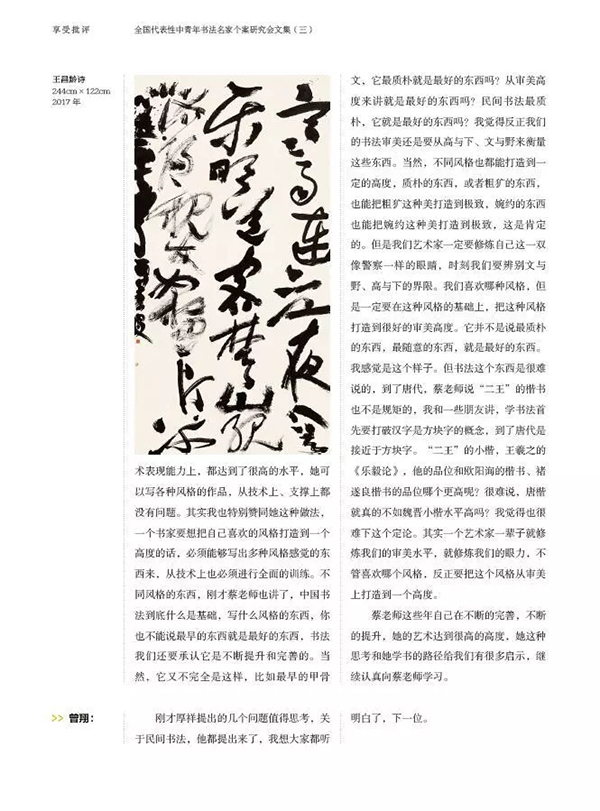 享受批评
全国代表性中青年书法名家个案研究会文集（三）
王昌龄诗
244cm×122cm
2017 年
寒雨连江夜入吴
平明送客楚山孤
洛阳亲友如相问
术表现能力上，都达到了很高的水平，她可
以写各种风格的作品，从技术上、支撑上都
没有问题。其实我也特别赞同她这种做法，
一个书家要想把自己喜欢的风格打造到一个
高度的话，必须能够写出多种风格感觉的东
西来，从技术上也必须进行全面的训练。不
同风格的东西，刚才蔡老师也讲了，中国书
法到底什么是基础，写什么风格的东西，你
也不能说最早的东西就是最好的东西，书法
我们还要承认它是不断提升和完善的。当
然，它又不完全是这样，比如最早的甲骨
文，它最质朴就是最好的东西吗？从审美高
度来讲就是最好的东西吗？民间书法最质
朴，它就是最好的东西吗？我觉得反正我们
的书法审美还是要从高与下、文与野来衡量
这些东西。当然，不同风格也都能打造到一
定的高度，质朴的东西，或者粗犷的东西，
也能把粗犷这种美打造到极致，婉约的东西
也能把婉约这种美打造到极致，这是肯定
的。但是我们艺术家一定要修炼自己这一双
像警察一样的眼睛，时刻我们要辨别文与
野、高与下的界限。我们喜欢哪种风格，但
是一定要在这种风格的基础上，把这种风格
打造到很好的审美高度。它并不是说最质朴
的东西，最随意的东西，就是最好的东西。
我感觉是这个样子。但书法这个东西是很难
说的，到了唐代，蔡老师说“二王”的楷书
也不是规矩的，我和一些朋友讲，学书法首
先要打破汉字是方块字的概念，到了唐代是
接近于方块字。“二王”的小楷，王羲之的
《乐毅论》，他的品位和欧阳海的楷书、褚
遂良楷书的品位哪个更高呢？很难说，唐楷
就真的不如魏晋小楷水平高吗？我觉得也很
难下这个定论。其实一个艺术家一辈子就修
炼我们的审美水平，就修炼我们的眼力，不
管喜欢哪个风格，反正要把这个风格从审美
上打造到一个高度。
蔡老师这些年自己在不断的完善，不断
的提升，她的艺术达到很高的高度，她这种
思考和她学书的路径给我们有很多启示，继
续认真向蔡老师学习。
>> 曾翔：
刚才厚祥提出的几个问题值得思考，关
于民间书法，他都提出来了，我想大家都听
明白了，下一位。